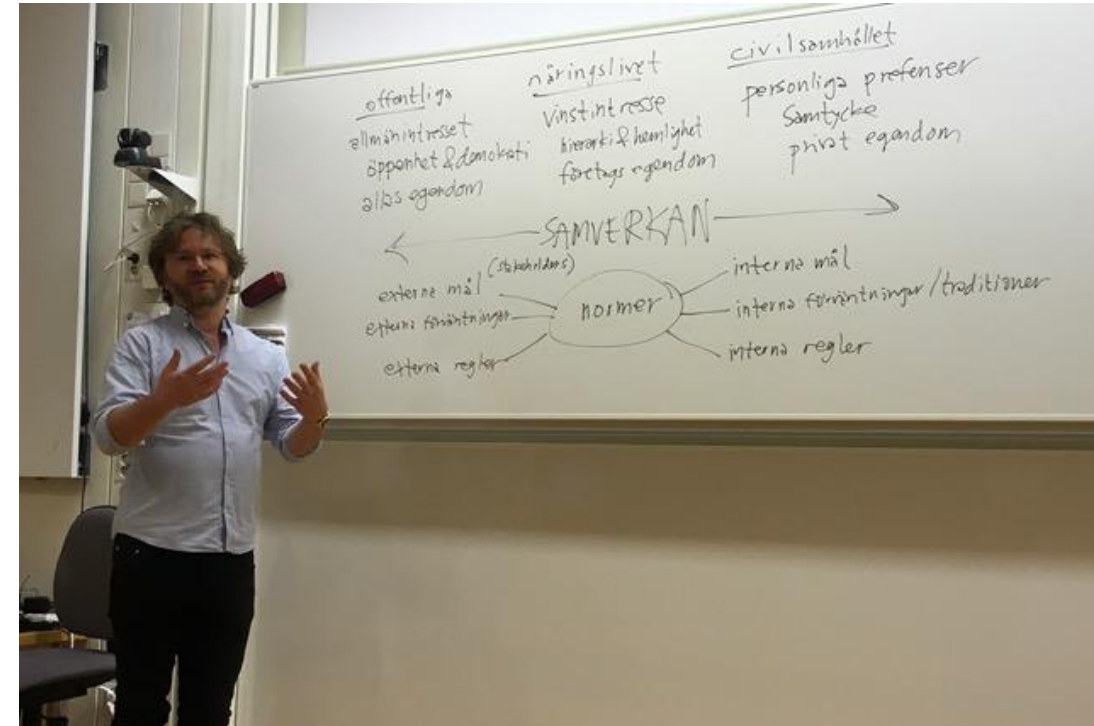 offentliga
allmänintresset
öppenhet & demokrati
allas egendom
näringslivet
vinstintresse
hierarki & hemlighet
företags egendom
civilsamhället
personliga prefenser
samtycke
privat egendom
SAMVERKAN
(stakeholders)
externa mål
externa förväntningar
externa regler
normer
interna mål
interna förväntningar/traditioner
interna regler